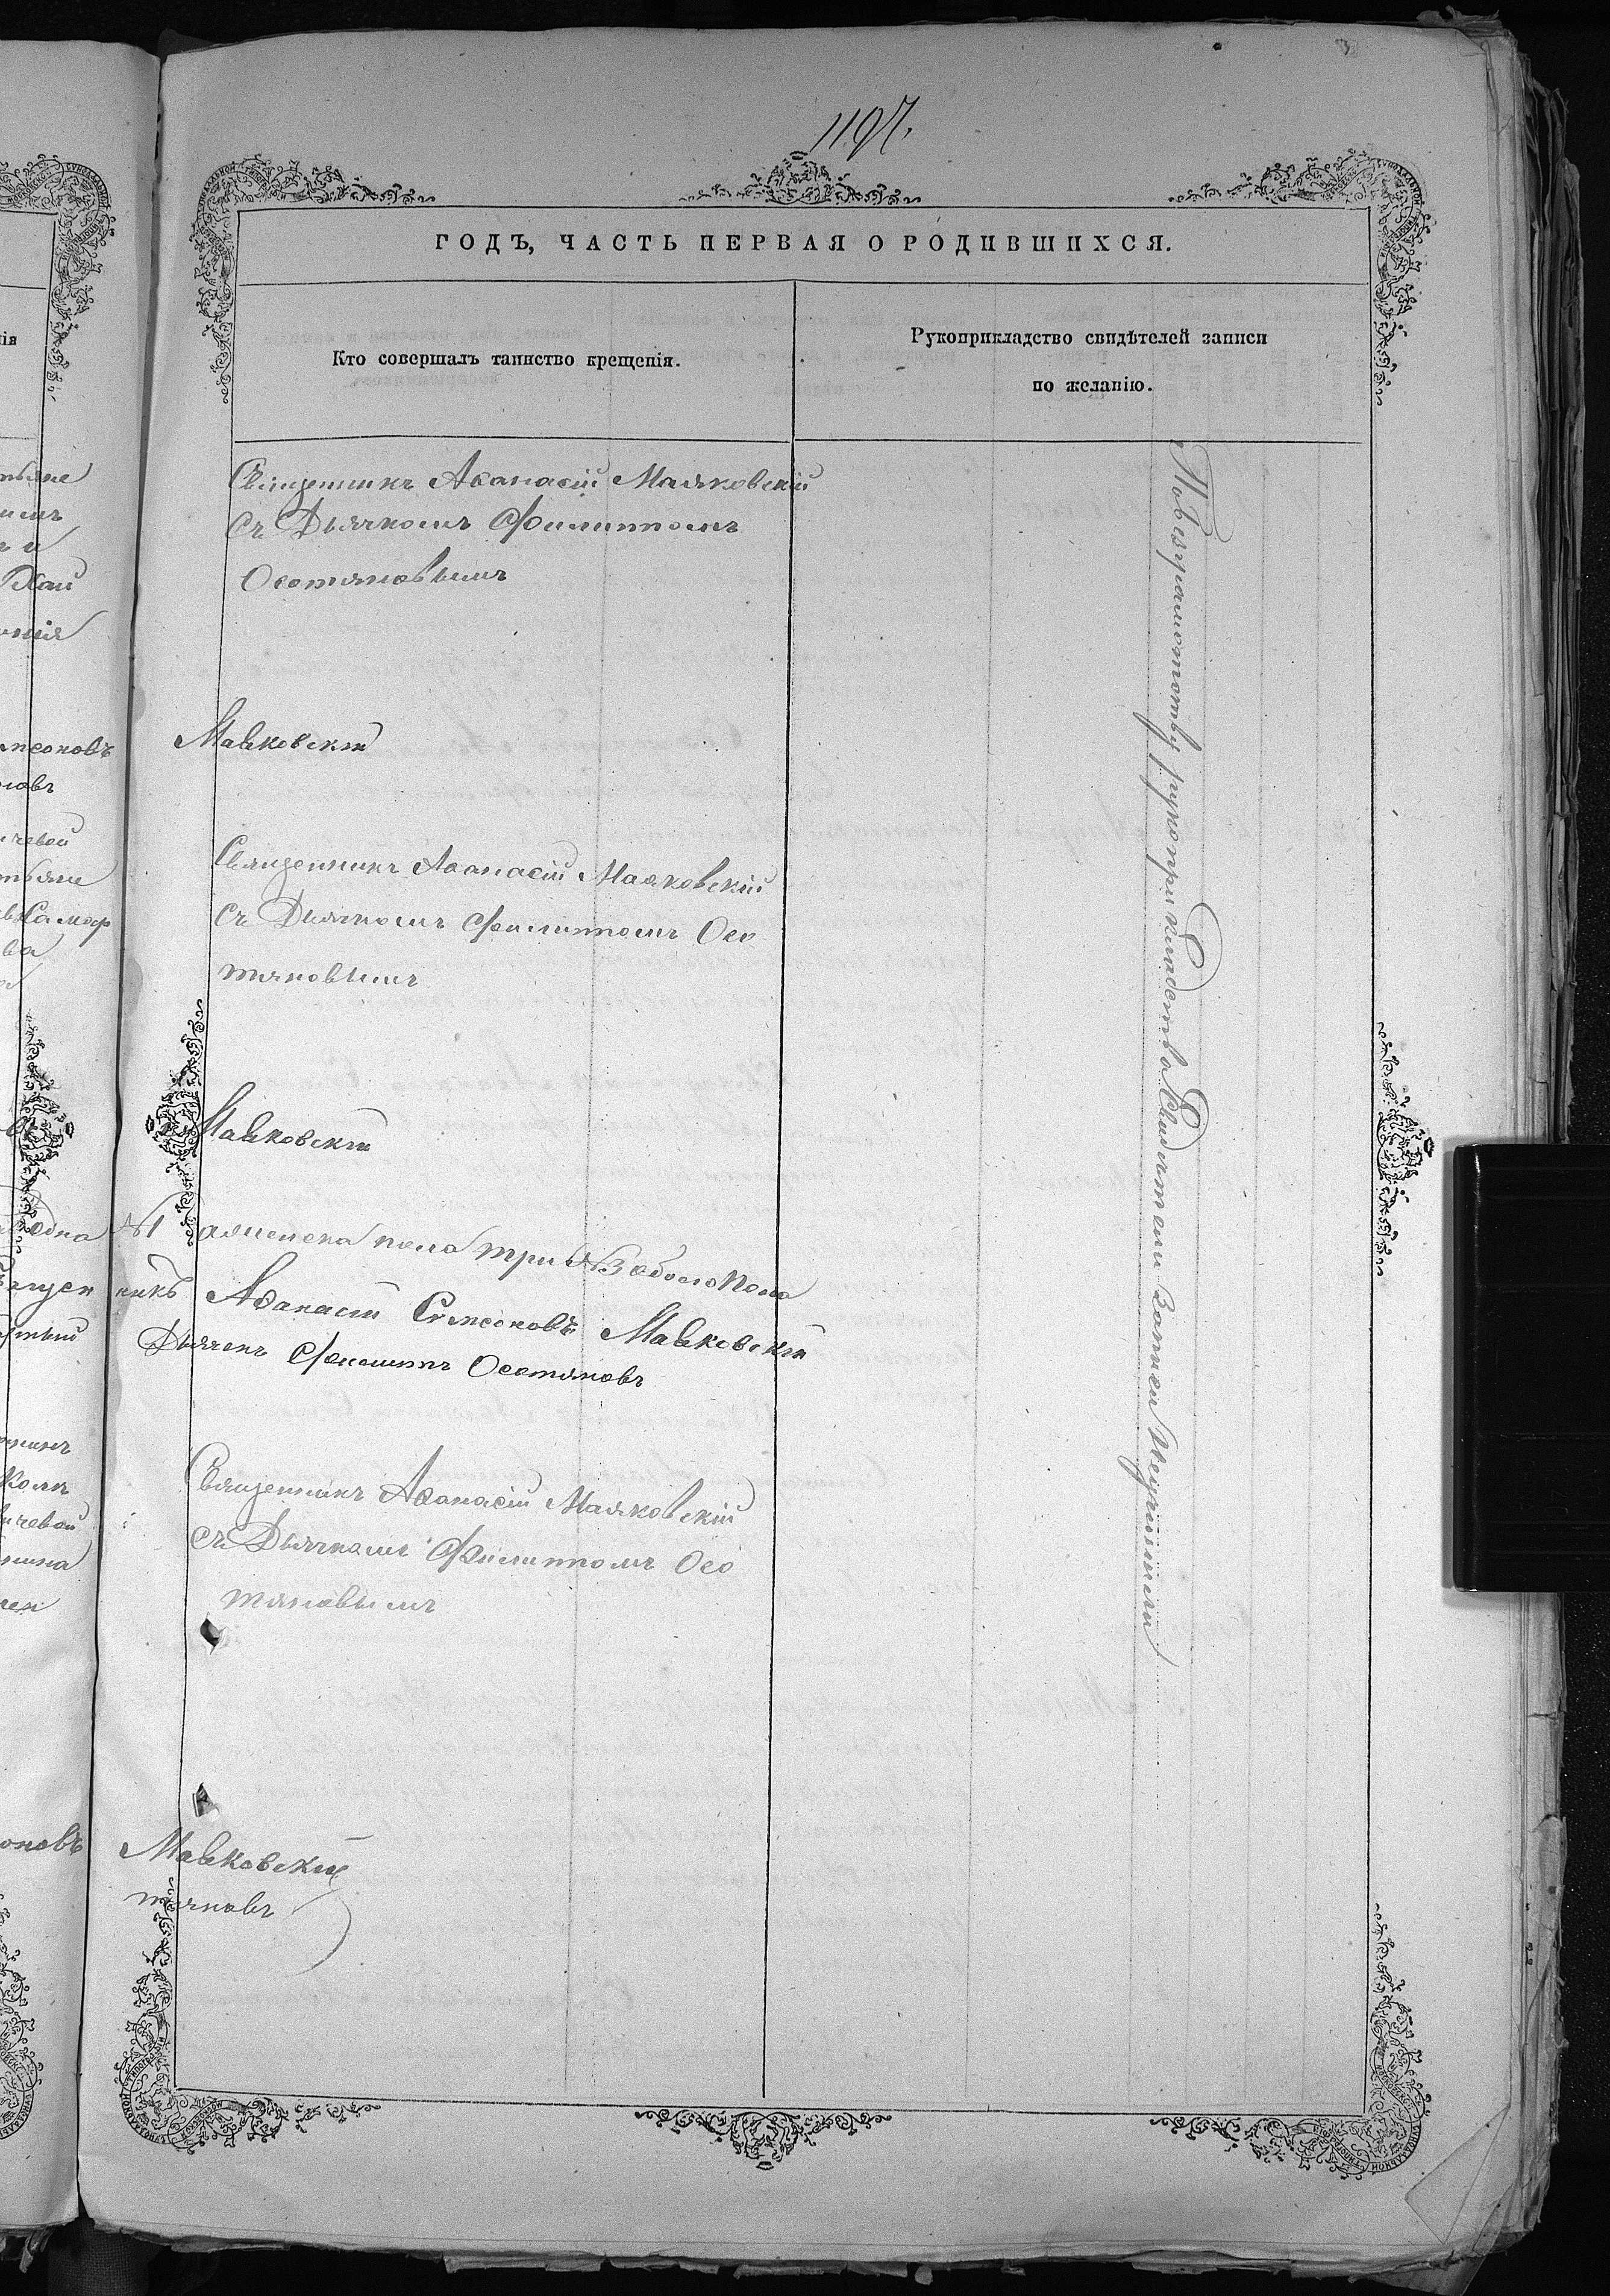 1197.
ГОДЪ, ЧАСТЬ ПЕРВАЯ О РОДИВШИХСЯ.
Кто совершалъ таинство крещенія.
Рукоприкладство свидѣтелей записи
по желанію.
Священникъ Аѳанасій Маяковскій
съ Дьячкомъ Филиппомъ
Осотяновымъ
Маяковскій
Священникъ Аѳанасій Маяковскій
съ Дьячкомъ Филиппомъ Осо
тяновымъ
Маяковскій
одна №1 пола три №3 обоего пола
никъ Аѳанасій Симеоновъ Маяковскій
Дьячекъ Филиппъ Осотяновъ
Священникъ Аѳанасій Маяковскій
съ Дьячкомъ Филиппомъ Осо
тяновымъ
Маяковскій
тяновъ
По безграмотству рукоприкладства Свидѣтели записи Неучинили